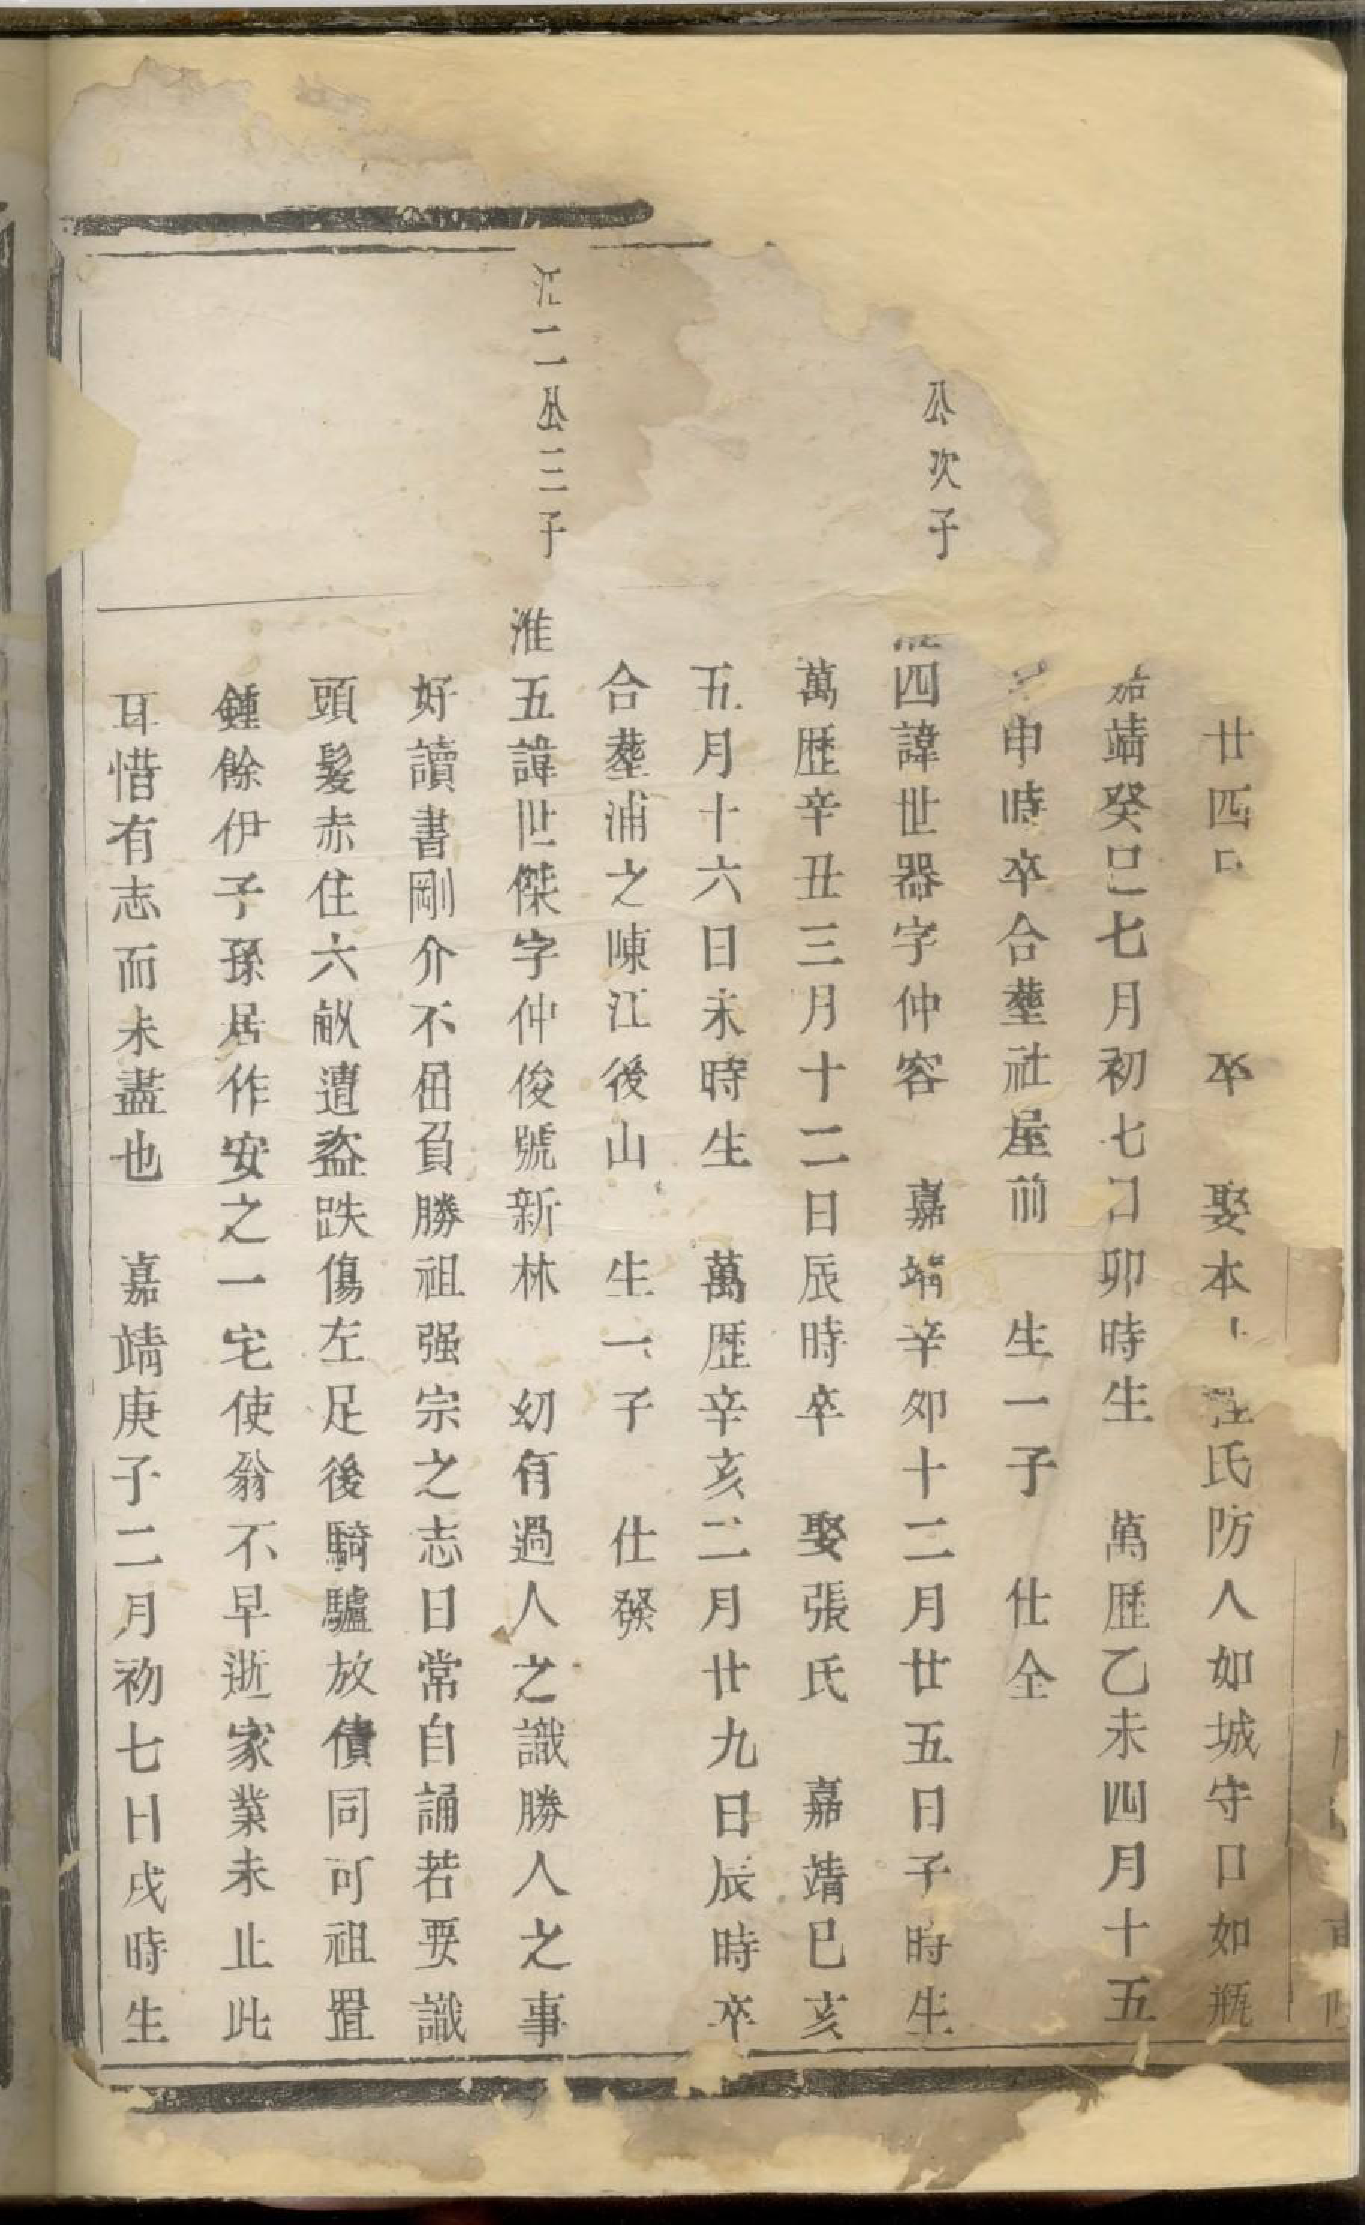 廿四日 卒 娶本 汪氏防人如城守口如瓶
嘉靖癸巳七月初七日卯時生 萬歷乙未四月十五
申時卒合塟社屋前 生一子 仕全
公次子
四諱世器字仲容 嘉靖辛卯十二月廿五日子時生
萬歷辛丑三月十二日辰時卒 娶張氏 嘉靖巳亥
五月十六日未時生 萬歷辛亥二月廿九日辰時卒
合塟浦之陳江後山 生一子 仕發
江二公三子
淮五諱世傑字仲俊號新林 幼有過人之識勝人之事
好讀書剛介不屈負勝祖强宗之志日常自誦若要識
頭髮赤住六畝遭盜跌傷左足後騎驢放債同可祖置
鍾餘伊子孫居作安之一宅使翁不早逝家業未止此
耳惜有志而未盡也 嘉靖庚子二月初七日戌時生